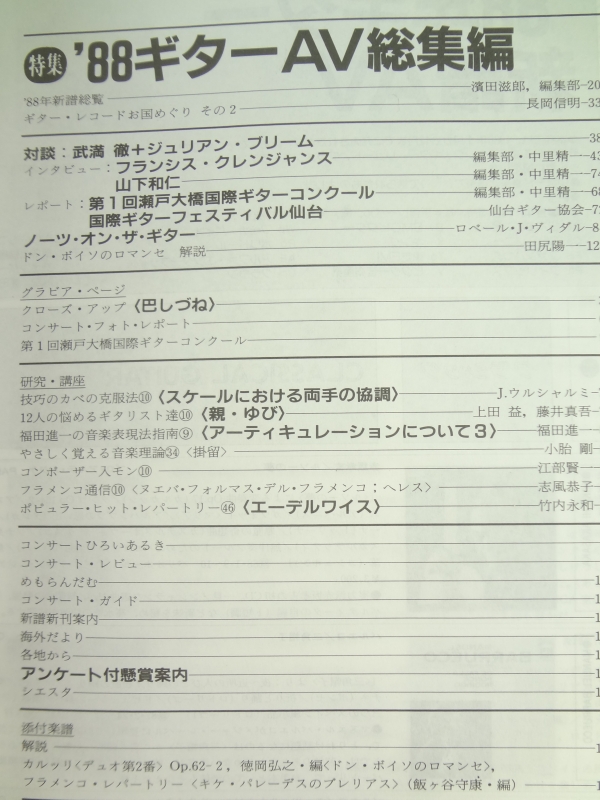 特集 '88ギターAV総集編
'88年新譜総覧 濱田滋郎，編集部 20
ギター・レコードお国めぐり その2 長岡信明 33
対談：武満 徹＋ジュリアン・ブリーム 38
インタビュー：フランシス・クレンジャンス 編集部・中里精 43
山下和仁 編集部・中里精 74
レポート：第1回瀬戸大橋国際ギターコンクール 編集部・中里精 68
国際ギターフェスティバル仙台 仙台ギター協会 72
ノーツ・オン・ザ・ギター ロベール・J・ヴィダル 8
ドン・ボイソのロマンセ 解説 田尻陽一 12
グラビア・ページ
クローズ・アップ〈巴しづね〉
コンサート・フォト・レポート
第1回瀬戸大橋国際ギターコンクール
研究・講座
技巧のカベの克服法⑩〈スケールにおける両手の協調〉 J.ウルシャルミ
12人の悩めるギタリスト達⑩〈親・ゆび〉 上田 益，藤井真吾
福田進一の音楽表現法指南⑨〈アーティキュレーションについて3〉 福田進一
やさしく覚える音楽理論㉞〈掛留〉 小胎 剛
コンポーザー入モン⑩ 江部賢一
フラメンコ通信⑩〈ヌエバ・フォルマス・デル・フラメンコ；ヘレス〉 志風恭子
ポピュラー・ヒット・レパートリー㊻〈エーデルワイス〉 竹内永和
コンサートひろいあるき
コンサート・レビュー
めもらんだむ 1
コンサート・ガイド 1
新譜新刊案内 1
海外だより 1
各地から 1
アンケート付懸賞案内 1
シエスタ 1
添付楽譜
解説 1
カルッリ〈デュオ第2番〉Op.62-2，徳岡弘之・編〈ドン・ボイソのロマンセ〉，
フラメンコ・レパートリー〈キケ・パレーデスのブレリアス〉（飯ヶ谷守康・編） 1